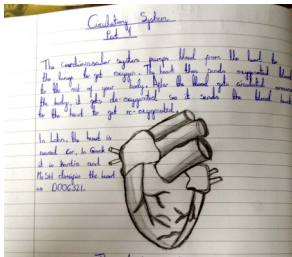 Circulatory System
Part 1
The cardiovascular system pumps blood from the heart to
the lungs to get oxygen. The heart then sends oxygenated blood
to the rest of your body. After the blood gets circulated around
the body, it gets de-oxygenated, so it sends the blood back
to the heart to get re-oxygenated.
In Latin, the heart is
named Cor, In Greek
it is kardia and
MeSH designs the heart
as D006321.